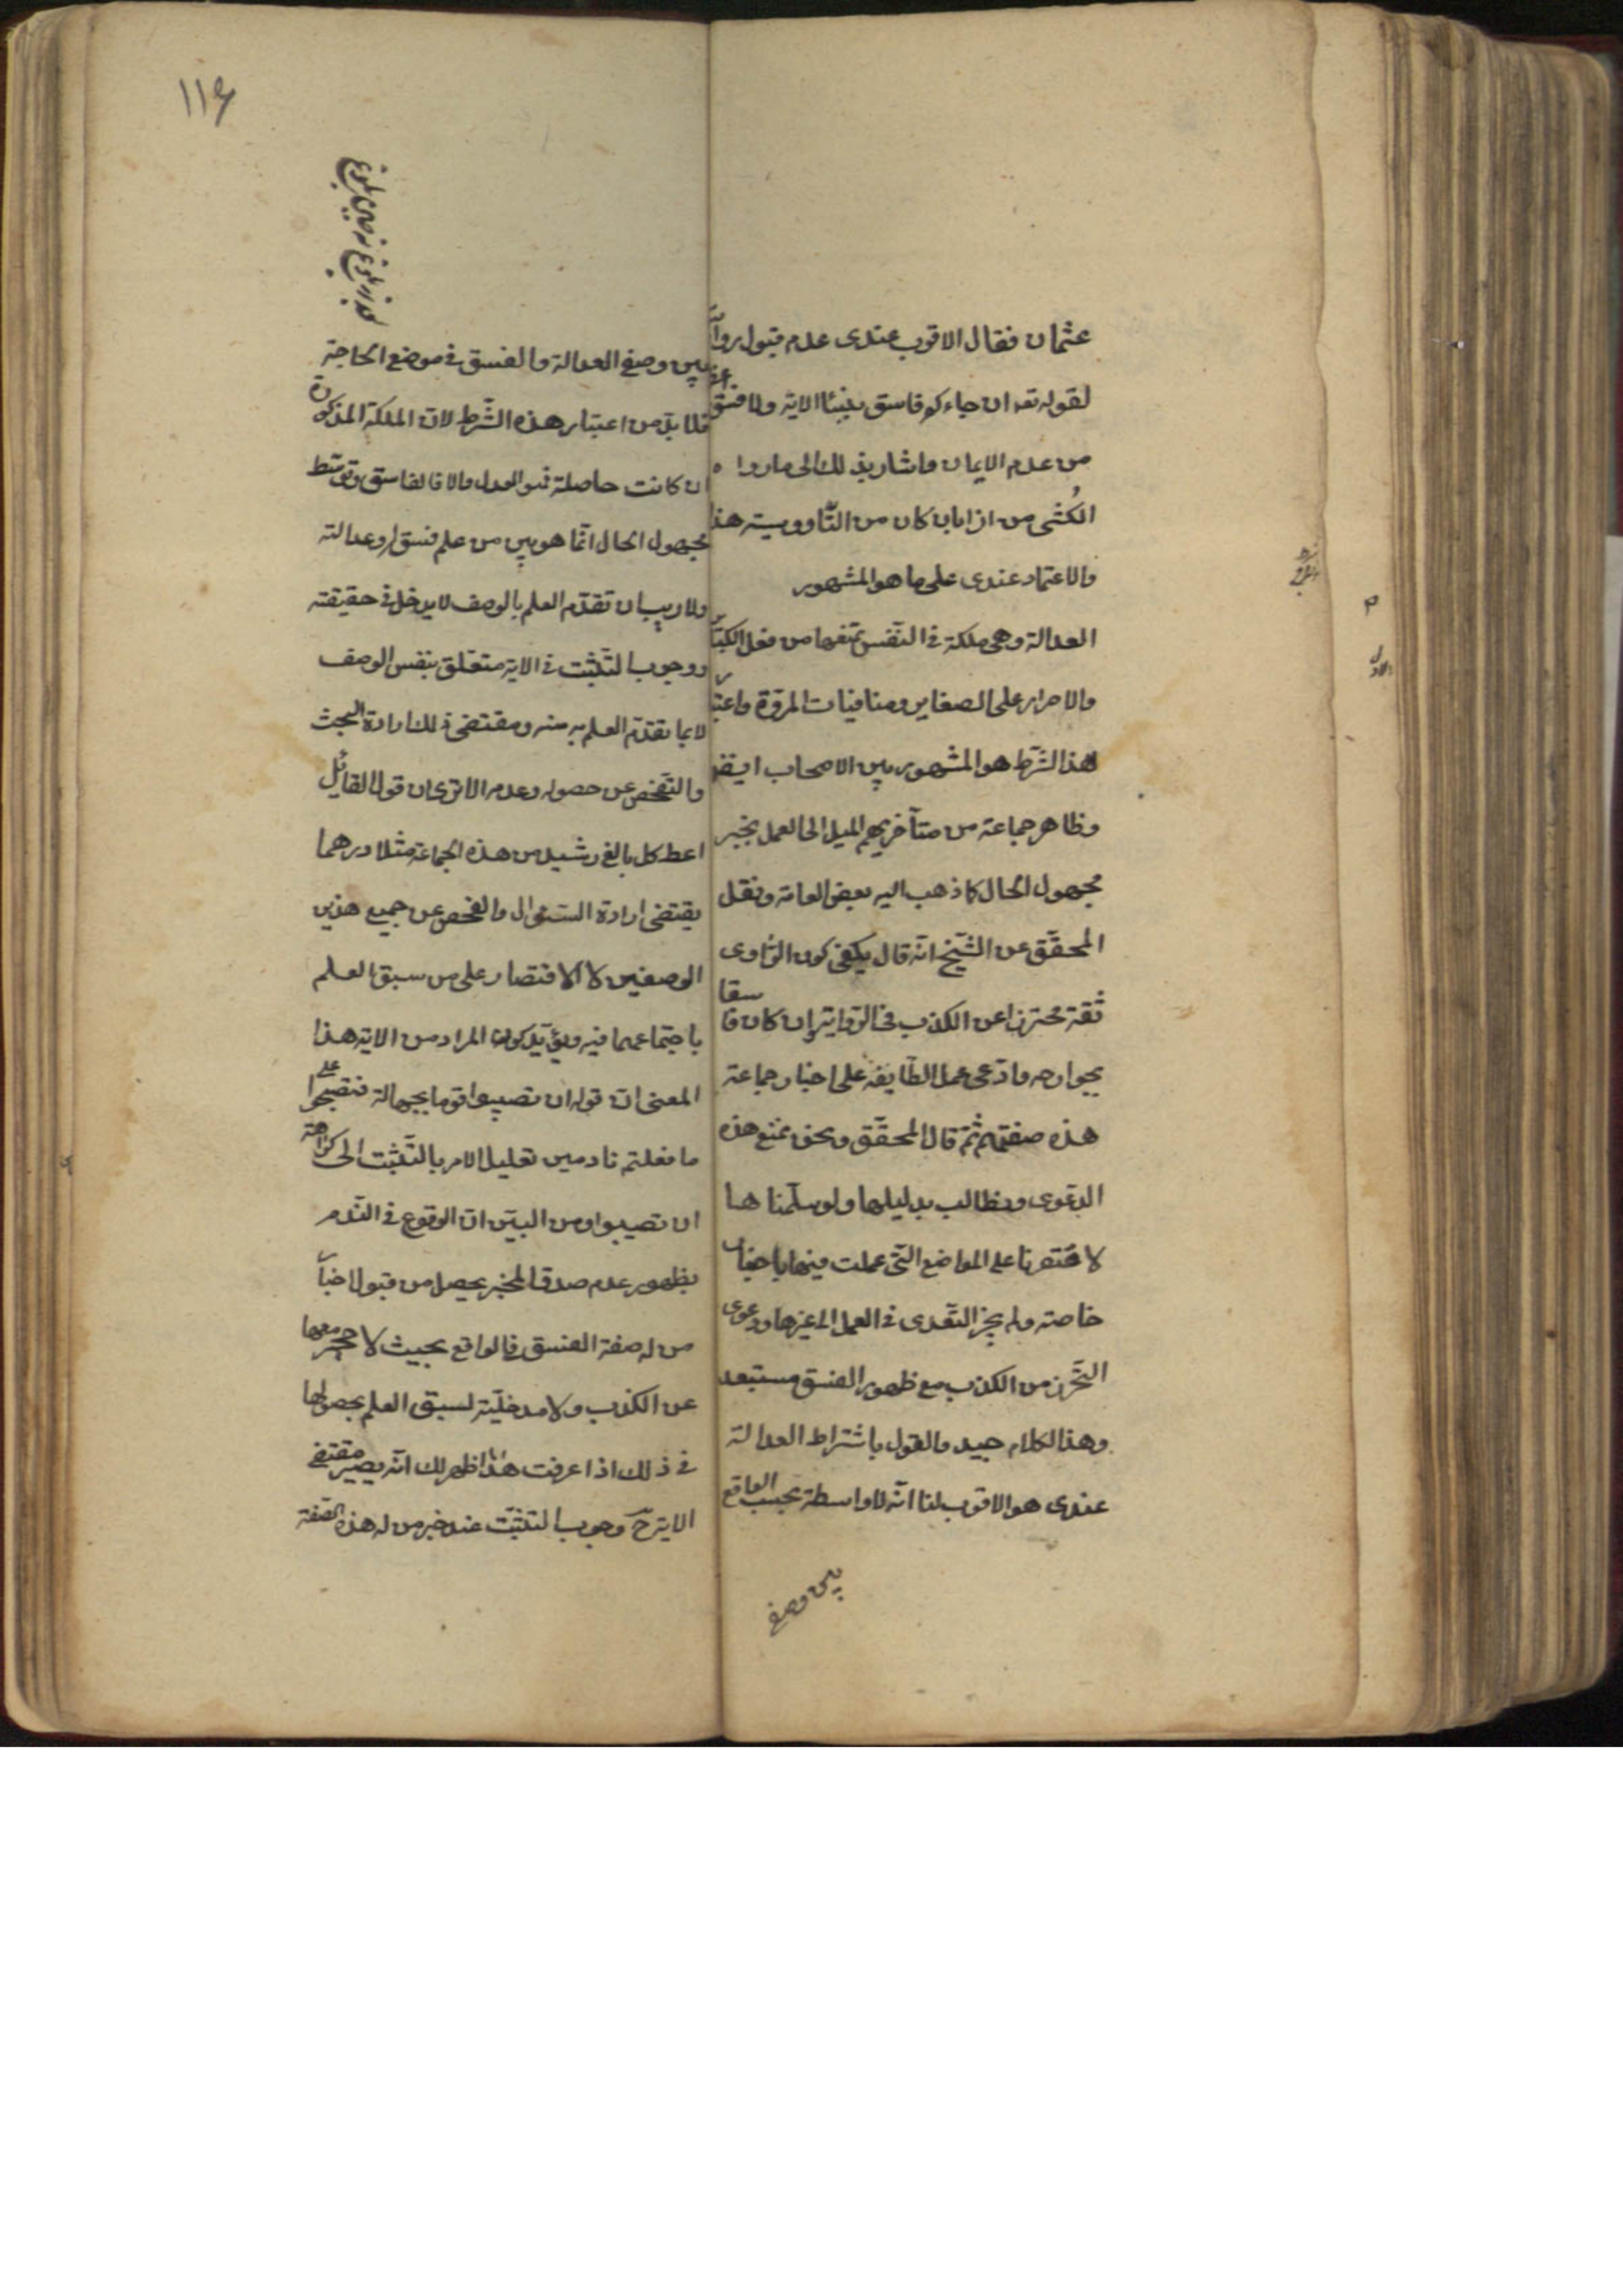 عثمان فقال الاقرب عندى عدم قبول رواية
لقوله تعه ان جاءكم فاسق بنبأ الاية ولا فسق اعظم
من عدم الايمان واشار بذلك الى ما رواه
الكُشّى من ان ابان كان من النّاووسية هذا
والاعتماد عندى على ما هو المشهور
العدالة وهى ملكة فى النّفس تمنعها من فعل الكبائر
والاصرار على الصغاير ومنافيات المروّة واعتبار
هذا الشّرط هو المشهور بين الاصحاب ايضا
وظاهر جماعة من متأخريهم الميل الى العمل بخبر
مجهول الحال كما ذهب اليه بعض العامة ونقل
المحقّق عن الشّيخ انّه قال يكفى كون الرّاوى
ثقة محترزا عن الكذب فى الرّواية وان كان فاسقا
بجوارحه وادّعى عمل الطّايفة على اخبار جماعة
هذه صفتهم ثمّ قال المحقّق ونحن نمنع هذه
الدعوى ونطالب بدليلها ولو سلّمناها
لاقتصرنا على المواضع الّتى عملت فيها باخبار
خاصة ولم يجز التّعدى فى العمل الى غيرها ودعوى
التّحرز من الكذب مع ظهور الفسق مستبعد
وهذا الكلام جيد والقول باشتراط العدالة
عندى هو الاقرب لنا انّه لا واسطة بحسب الواقع
بين وصفى
١١۶
بين وصفى العدالة والفسق فى موضع الحاجة
فلا بدّ من اعتبار هذه الشّرط لانّ الملكة المذكورة
ان كانت حاصلة فهو العدل والا فالفاسق وتوسّط
مجهول الحال انّما هو بين من علم فسقه او عدالته
ولا ريب ان تقدّم العلم بالوصف لا يدخل فى حقيقته
ووجوب التّثبت فى الاية متعلّق بنفس الوصف
لا بما تقدّم العلم به منه ومقتضى ذلك ارادة البحث
والتّفحص عن حصوله وعدمه الا ترى ان قول القائل
اعط كل بالغ رشيد من هذه الجماعة مثلا درهما
يقتضى ارادة السّؤال والفحص عن جميع هذين
الوصفين لا الاقتصار على من سبق العلم
باجتماعهما فيه ويؤيّد كون المراد من الاية هذا
المعنى انّ قوله ان تصيبوا قوما بجهالة فتصبحوا على
ما فعلتم نادمين تعليل الامر بالتّثبت الى كراهة
ان تصيبوا ومن البيّن انّ الوقوع فى النّدم
بظهور عدم صدق المخبر يحصل من قبول اخبار
من له صفة الفسق فى الواقع بحيث لا حجر معها
عن الكذب ولا مدخليّة لسبق العلم بحصولها
فى ذلك اذا عرفت هذا ظهر لك انّه يصير مقتضى
الاية ح وجوب التّثبّت عند خبر من له هذه الصّفة